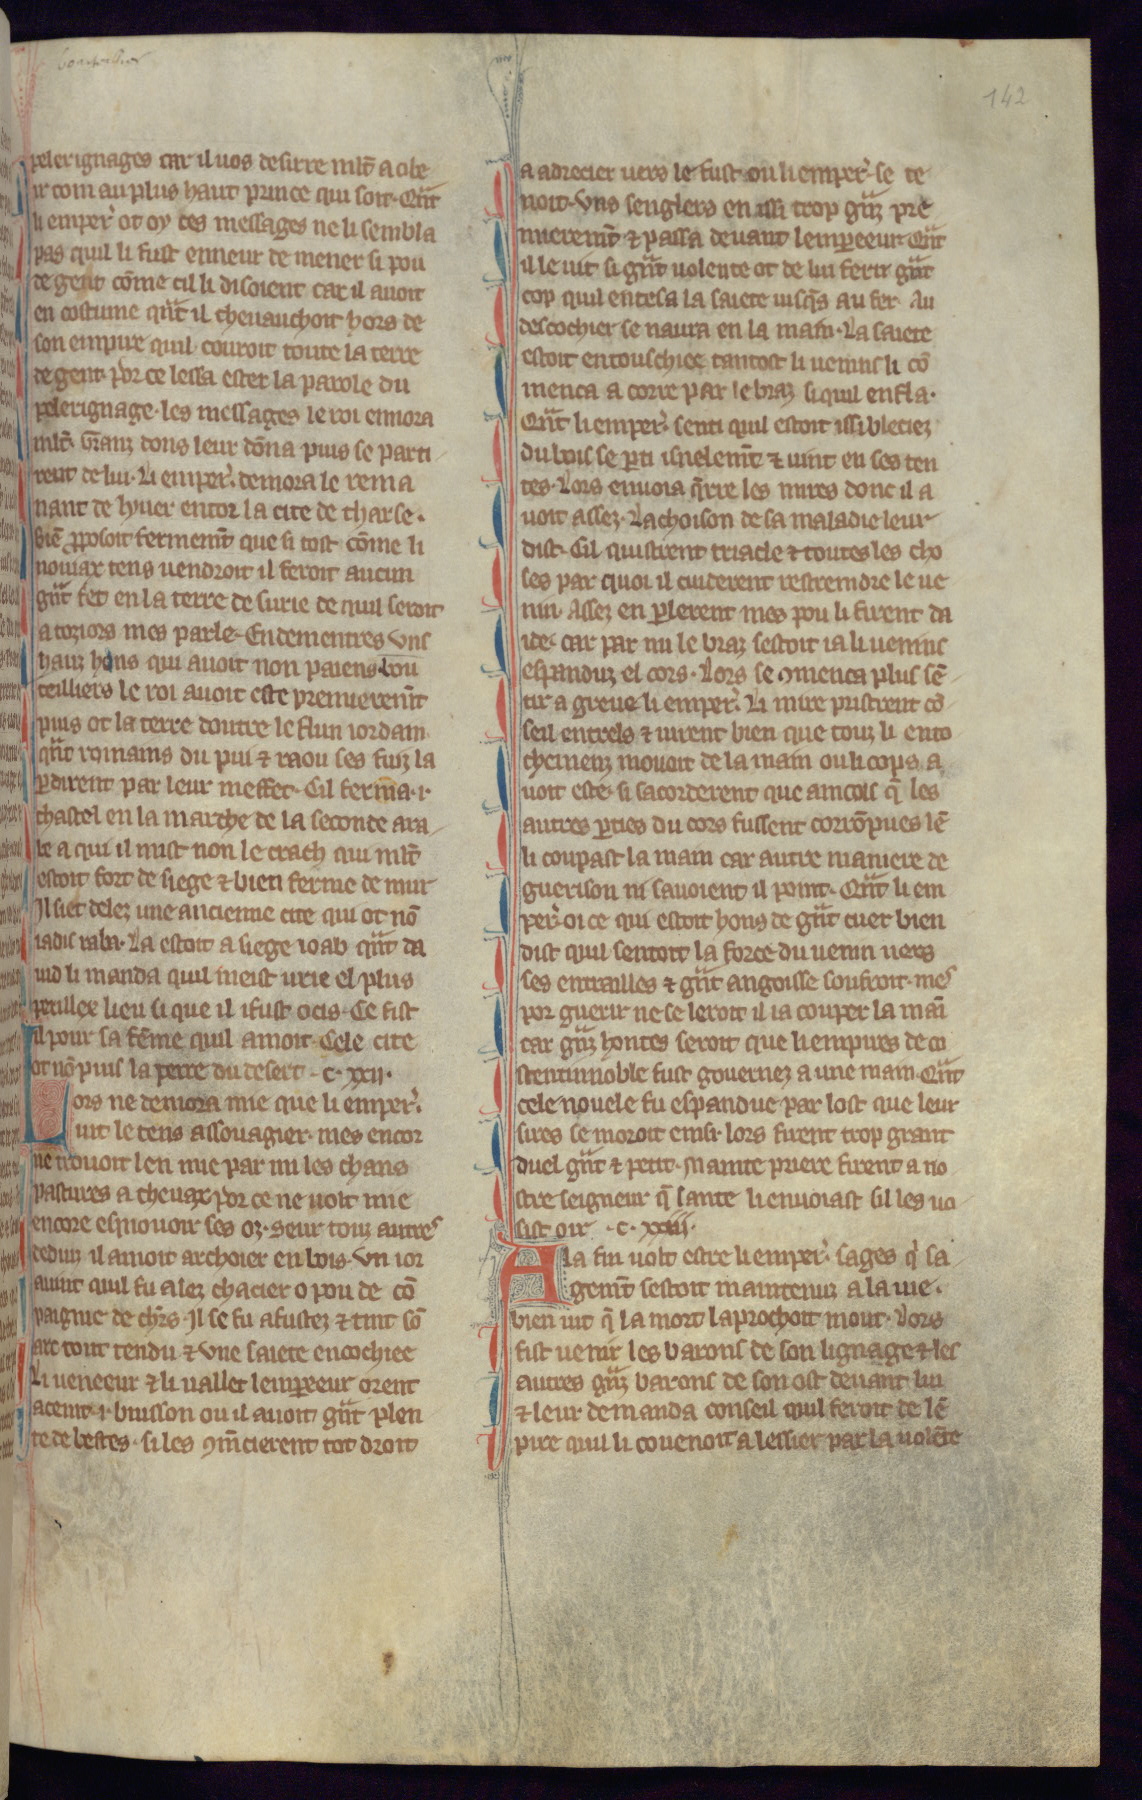 142
pelerignages car il uos desirre ml̃t a obe
ir com au plus haut prince qui soit. Qũt
li emper̾ ot oy ces messages ne li sembla
pas quil li fust enneur de mener si pou
de gent cõme cil li disoient car il auoit
en costume qũt il cheuauchoit hors de
son empire quil couroit toute la terre
de gent. por ce lessa ester la parole du
pelerignage. les messages le roi ennora
ml̃t. Granz dons leur dõna puis se parti
rent de lui. Li emper̾. demora le rema
nant de hyuer entor la cite de tharse.
biẽ ꝓposoit fermemt̃ que si tost cõme li
nouiax tens uendroit il feroit aucun
gñt fet en la terre de surie de quil seroit
a toziors mes parle. Endementres vns
hauz hons qui auoit non paiens bou
teilliers le roi auoit este premieremt̃
puis ot la terre doutre le flun iordain.
qñt romains du pui & raou ses fuiz la
ꝑdirent par leur meffet. Cil ferma .i.
chastel en la marche de la seconde ara
be a qui il mist non le crach qui ml̃t
estoit fort de siege & bien ferme de mur
Il siet delez une ancienne cite qui ot nõ
iadis raba. La estoit a siege ioab qñt da
uid li manda quil meist urie el plus
perillex lieu si que il i fust ocis. Ce fist
il pour sa fẽme quil amoit. Cele cite
ot nõ puis la perre du desert .c. xxii.
Lors ne demora mie que li emper̾.
uit le tens assouagier. mes encor
ne trouoit len mie par mi les chans
pastures a cheuax por ce ne uolt mie
encore esmouoir ses oz. seur touz autres
deduiz il amoit archoier en bois. Vn ior
auint quil fu alez chacier o pou de cõ
paignie de chr̃s. Il se fu afustez & tint sõ
arc tout tendu & vne saiete encochiee
Li ueneeur & li uallet lempereeur orent
aceint .i. buisson ou il auoit gñt plen
te de bestes. si les ꝯmẽcierent tot droit
a adrecier uers le fust ou li emper̾. se te
noit. Vns senglers en issi trop grñz pre
mieremt̃ & passa deuant lempereeur. Qũt
il le uit si gñt uolente ot de lui ferir gñt
cop quil entesa la saiete iusqs̃ au fer. Au
descochier se naura en la main. La saiete
estoit entouschiee tantost li uenins li cõ
menca a corre par le braz si quil enfla.
Qñt li emper̾. senti quil estoit issi bleciez
du bois se ꝑti isnelemt̃ & uint en ses ten
tes. Lors enuoia q̃rre les mires donc il a
uoit assez. Lachoison de sa maladie leur
dist. Cil quistrent triacle & toutes les cho
ses par quoi il cuiderent restreindre le ue
nin. Assez en ꝑlerent mes pou li firent da
ide. car par mi le braz sestoit ia li uenins
espanduz el cors. Lors se ꝯmenca plus sẽ
tir a greue li emper̾. Li mire pristrent cõ
seil entrels & uirent bien que touz li ento
chemenz mouoit de la main ou li cops a
uoit este. si sacorderent que aincois q̃ les
autres ꝑties du cors fussent corrõpues lẽ
li coupast la main car autre maniere de
guerison ni sauoient il point. Qñt li em
per̾. oi ce qui estoit hons de gñt cuer bien
dist quil sentoit la force du uenin uers
ses entrailles & gñt angoisse soufroit. mes
por guerir ne se leroit il ia couper la maĩ
car grñz hontes seroit que li empires de co
stentinnoble fust gouernez a une main. Qñt
cele nouele fu espandue par lost que leur
sires se moroit einsi. lors firent trop grant
duel gñt & petit. Mainte priere firent a no
stre seigneur q̃ sante li enuoiast sil les uo
sist oir .c. xxiii.
A la fin uolt estre li emper̾. sages q̾ sa
gemt̃ sestoit maintenuz a la uie.
bien uit q̃ la mort laprochoit mout. Lors
fist uenir les barons de son lignage & les
autres grñz barons de son ost deuant lui
& leur demanda conseil quil feroit de lẽ
pire quil li couenoit a lessier par la uolẽte